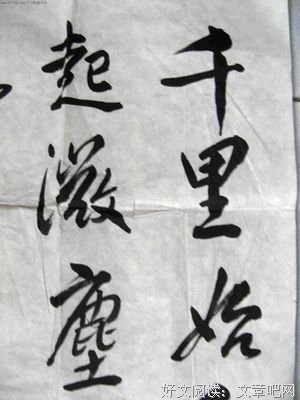 千里始
起微塵
好文阅读：文章吧网